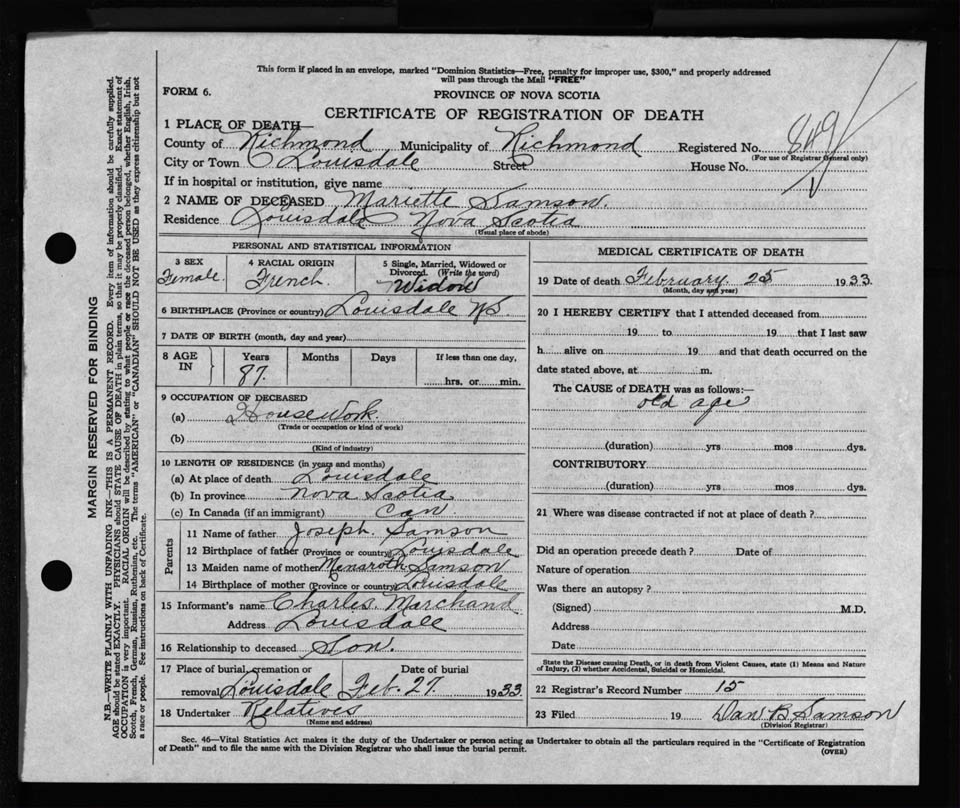 This form if placed in an envelope, marked "Dominion Statistics—Free, penalty for improper use, $300," and properly addressed
will pass through the Mail "FREE"
FORM 6.
PROVINCE OF NOVA SCOTIA
CERTIFICATE OF REGISTRATION OF DEATH
1 PLACE OF DEATH—
County of Richmond Municipality of Richmond Registered No. 849
(For use of Registrar General only)
City or Town Louisdale Street House No.
If in hospital or institution, give name
2 NAME OF DECEASED Mariette Samson.
Residence Louisdale Nova Scotia
(Usual place of abode)
PERSONAL AND STATISTICAL INFORMATION
3 SEX
Female.
4 RACIAL ORIGIN
French.
5 Single, Married, Widowed or
Divorced. (Write the word)
Widow
6 BIRTHPLACE (Province or country) Louisdale N.S.
7 DATE OF BIRTH (month, day and year)
8 AGE
IN
Years
87.
Months
Days
If less than one day,
hrs. or min.
9 OCCUPATION OF DECEASED
(a) Housework.
(Trade or occupation or kind of work)
(b)
(Kind of industry)
10 LENGTH OF RESIDENCE (in years and months)
(a) At place of death Louisdale
(b) In province Nova Scotia
(c) In Canada (if an immigrant) Can
Parents
11 Name of father Joseph Samson
12 Birthplace of father (Province or country) Louisdale
13 Maiden name of mother Samson
14 Birthplace of mother (Province or country) Louisdale
15 Informant's name Charles Marchand
Address Louisdale
16 Relationship to deceased Son.
17 Place of burial, cremation or
removal Louisdale
Date of burial
Feb. 27 1933.
18 Undertaker Relatives
(Name and address)
MEDICAL CERTIFICATE OF DEATH
19 Date of death February 25 1933.
(Month, day and year)
20 I HEREBY CERTIFY that I attended deceased from
19 to 19 that I last saw
h alive on 19 and that death occurred on the
date stated above, at m.
The CAUSE of DEATH was as follows:—
old age
(duration) yrs mos dys.
CONTRIBUTORY
(duration) yrs. mos. dys.
21 Where was disease contracted if not at place of death?
Did an operation precede death? Date of
Nature of operation
Was there an autopsy?
(Signed) M.D.
Address
Date
State the Disease causing Death, or in death from Violent Causes, state (1) Means and Nature
of Injury, (2) whether Accidental, Suicidal or Homicidal.
22 Registrar's Record Number 15
23 Filed 19 Dan B Samson
(Division Registrar)
Sec. 46—Vital Statistics Act makes it the duty of the Undertaker or person acting as Undertaker to obtain all the particulars required in the "Certificate of Registration
of Death" and to file the same with the Division Registrar who shall issue the burial permit.
(OVER)
MARGIN RESERVED FOR BINDING
N.B.—WRITE PLAINLY WITH UNFADING INK—THIS IS A PERMANENT RECORD. Every item of information should be carefully supplied.
AGE should be stated EXACTLY. PHYSICIANS should STATE CAUSE OF DEATH in plain terms, so that it may be properly classified. Exact statement of
OCCUPATION is very important. RACIAL ORIGIN will be described by stating to what people or race the deceased person belonged, whether English, Irish,
Scotch, French, German, Russian, Ruthenian, etc. The terms "AMERICAN" or "CANADIAN" SHOULD NOT BE USED as they express citizenship but not
a race or people. See instructions on back of Certificate.